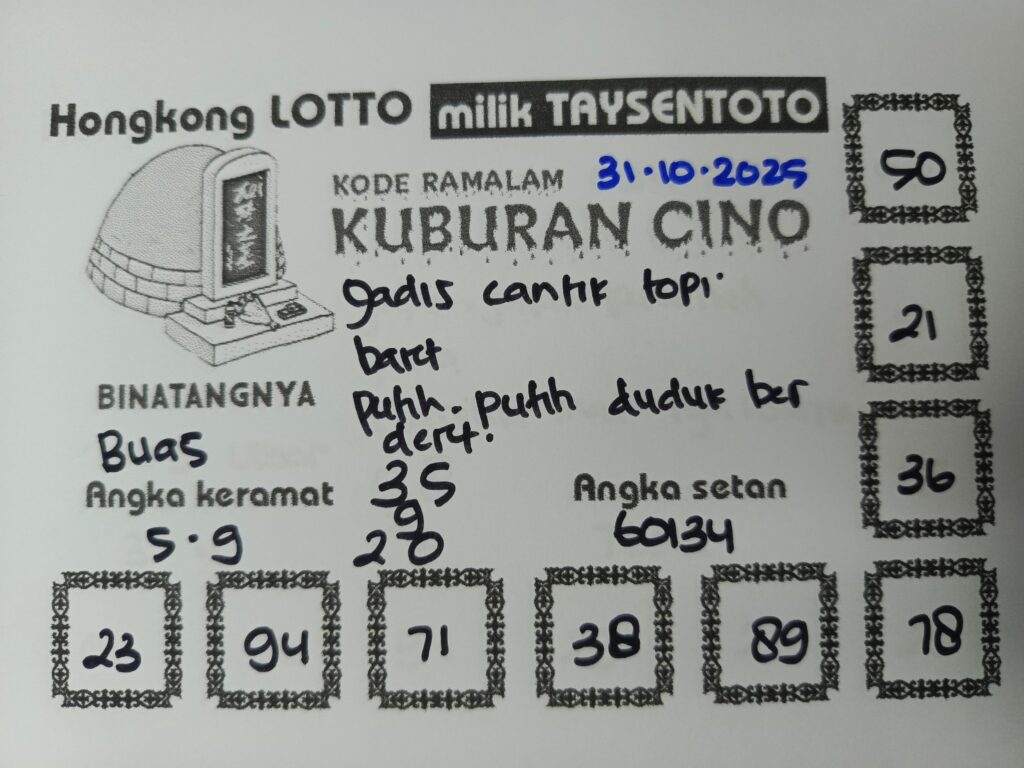 Hongkong LOTTO milik TAYSENTOTO
KODE RAMALAM 31.10.2025
KUBURAN CINO
gadis cantik topi
baret
putih. putih duduk ber
deret.
BINATANGNYA
Buas
Angka keramat
5.9
35
9
20
Angka setan
60134
50
21
36
23 94 71 38 89 78